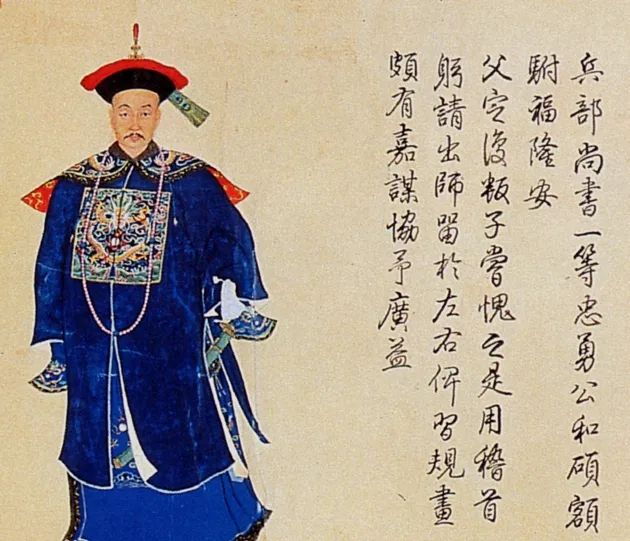 兵部尚書一等忠勇公和碩額
駙福隆安
父定復叛子嘗愧之是用稽首
躬請出師留於左右俾習規畫
頗有嘉謀協予廣益